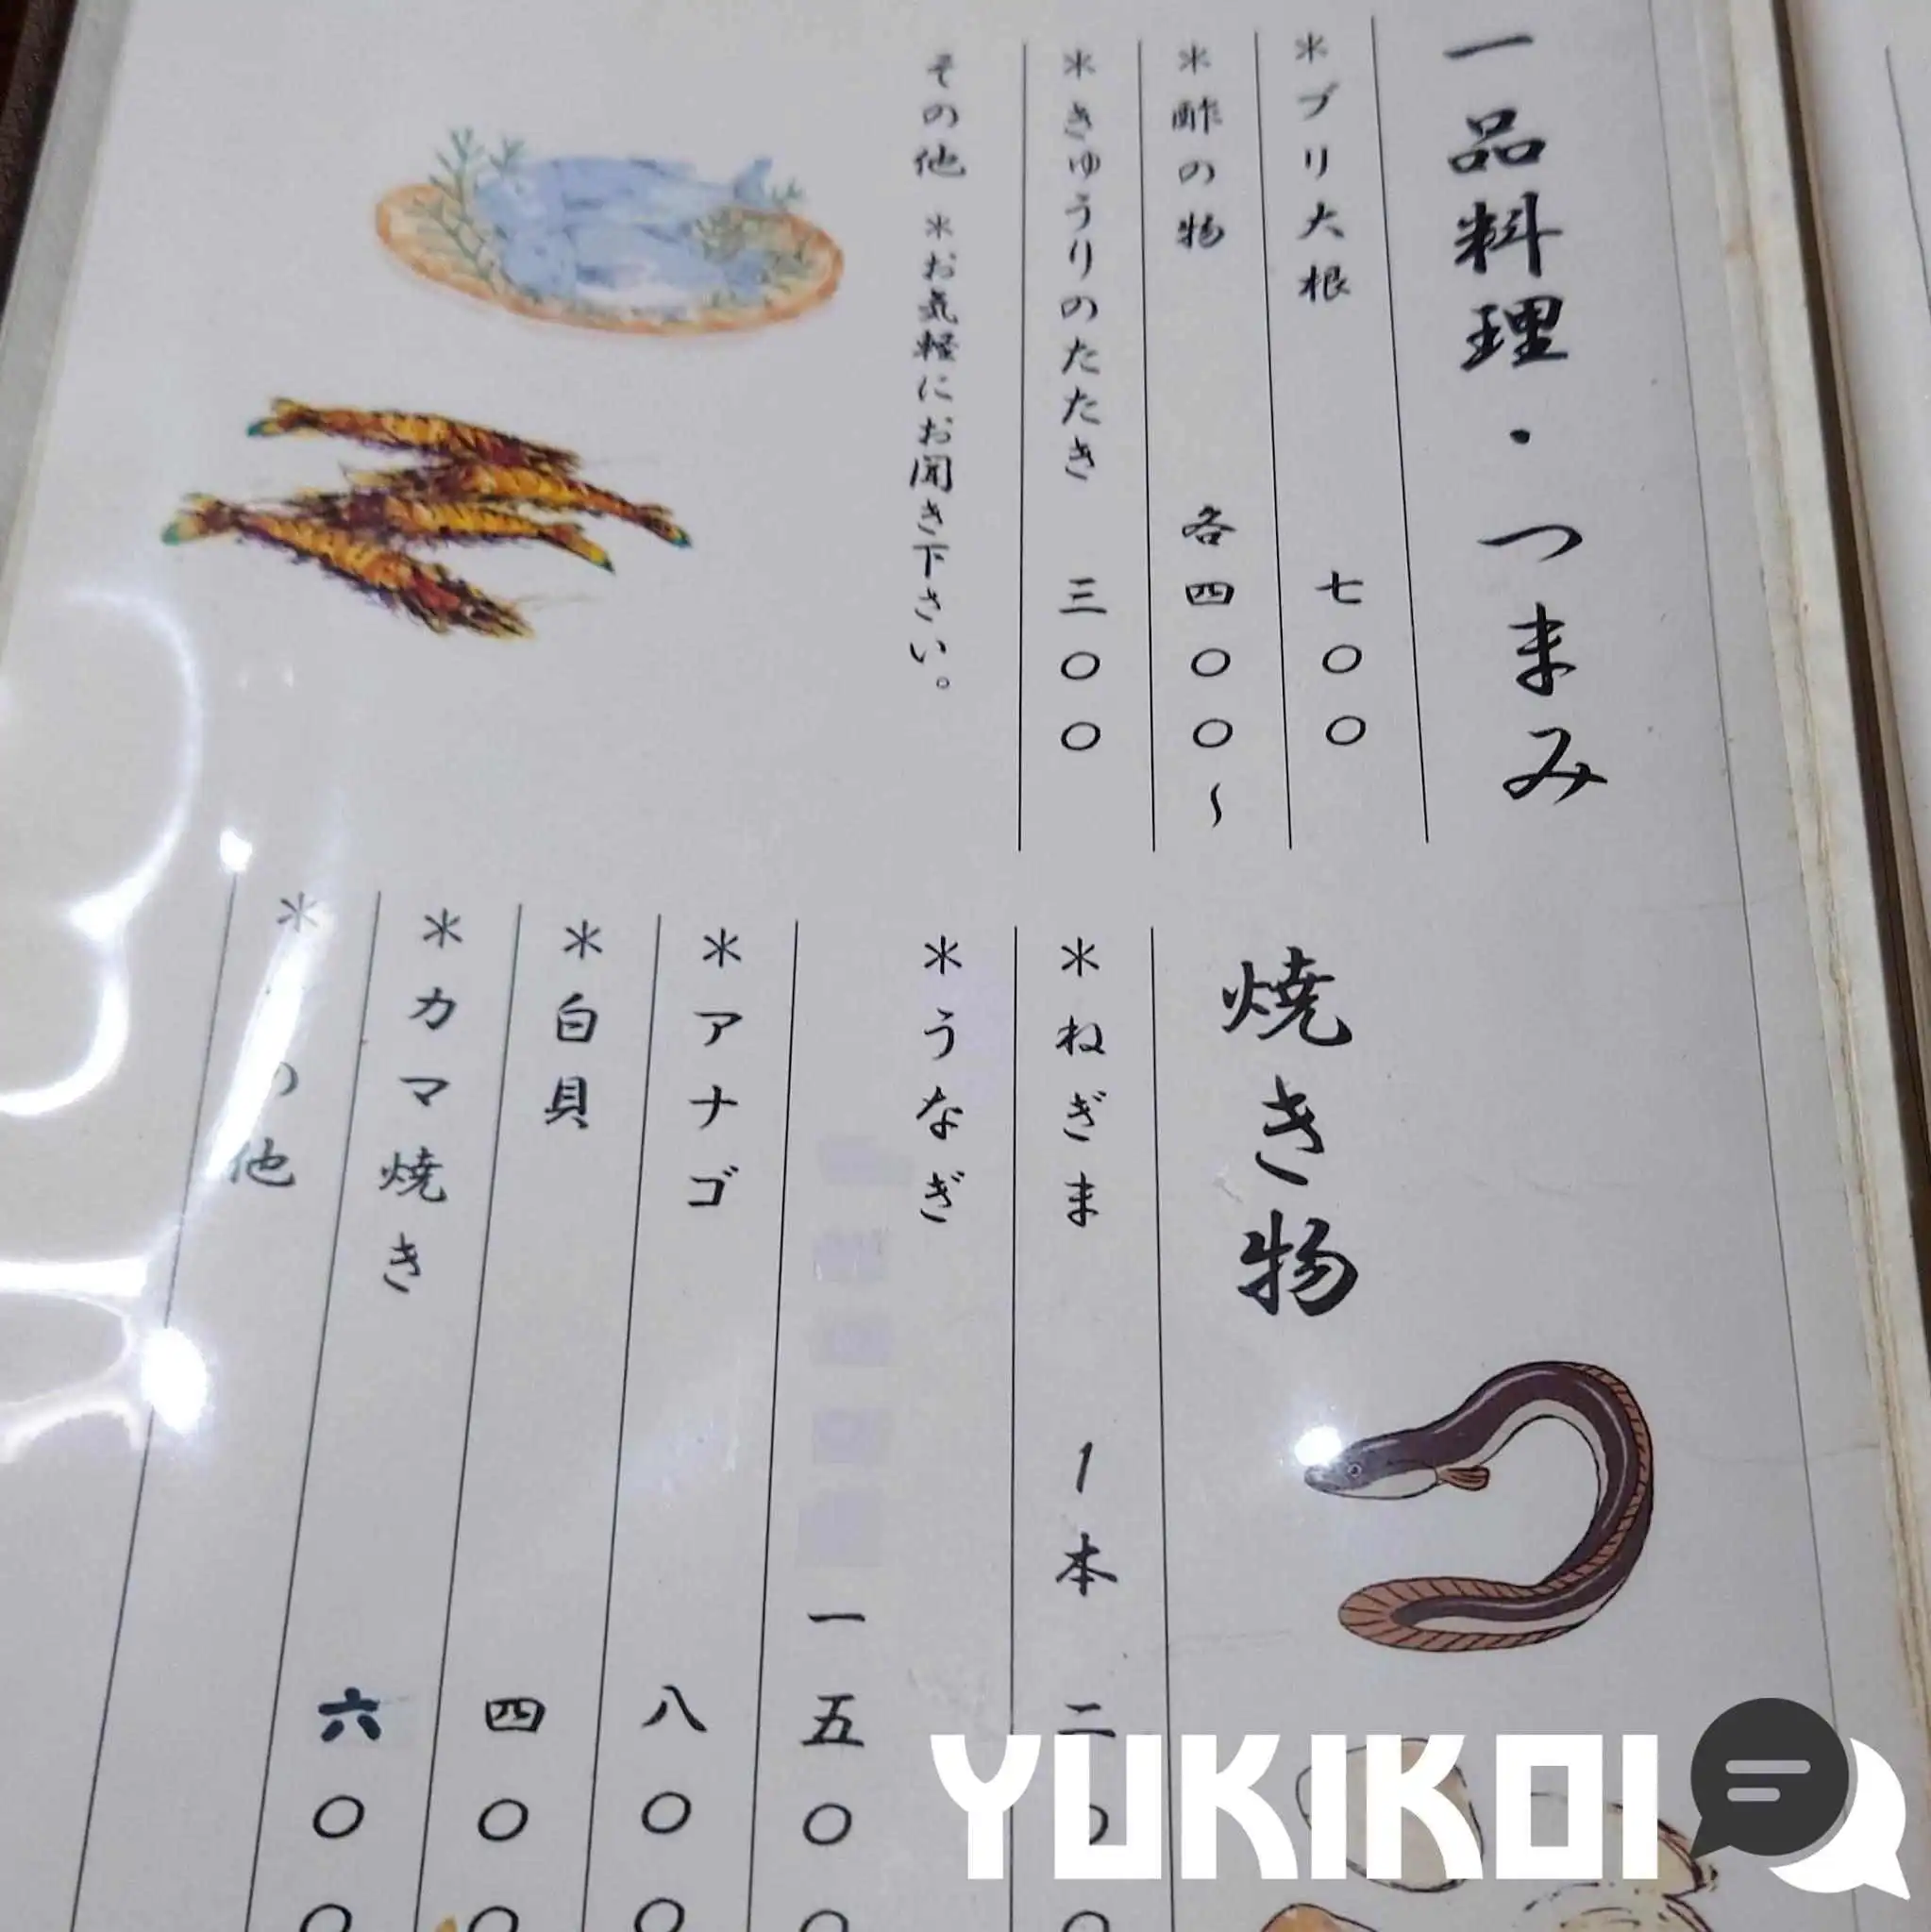 一品料理・つまみ
＊ブリ大根 七〇〇
＊酢の物 各四〇〇〜
＊きゅうりのたたき 三〇〇
その他 ＊お気軽にお聞き下さい。
焼き物
＊ねぎま 1本 二〇〇
＊うなぎ 一五〇〇
＊アナゴ 八〇〇
＊白貝 四〇〇
＊カマ焼き 六〇〇
＊ の他
YUKIKOI